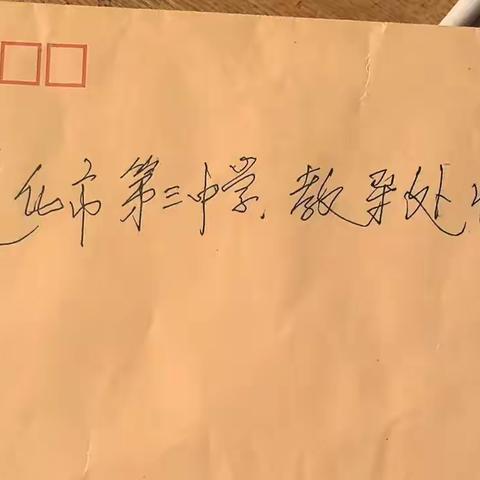 化市第三中学教导处